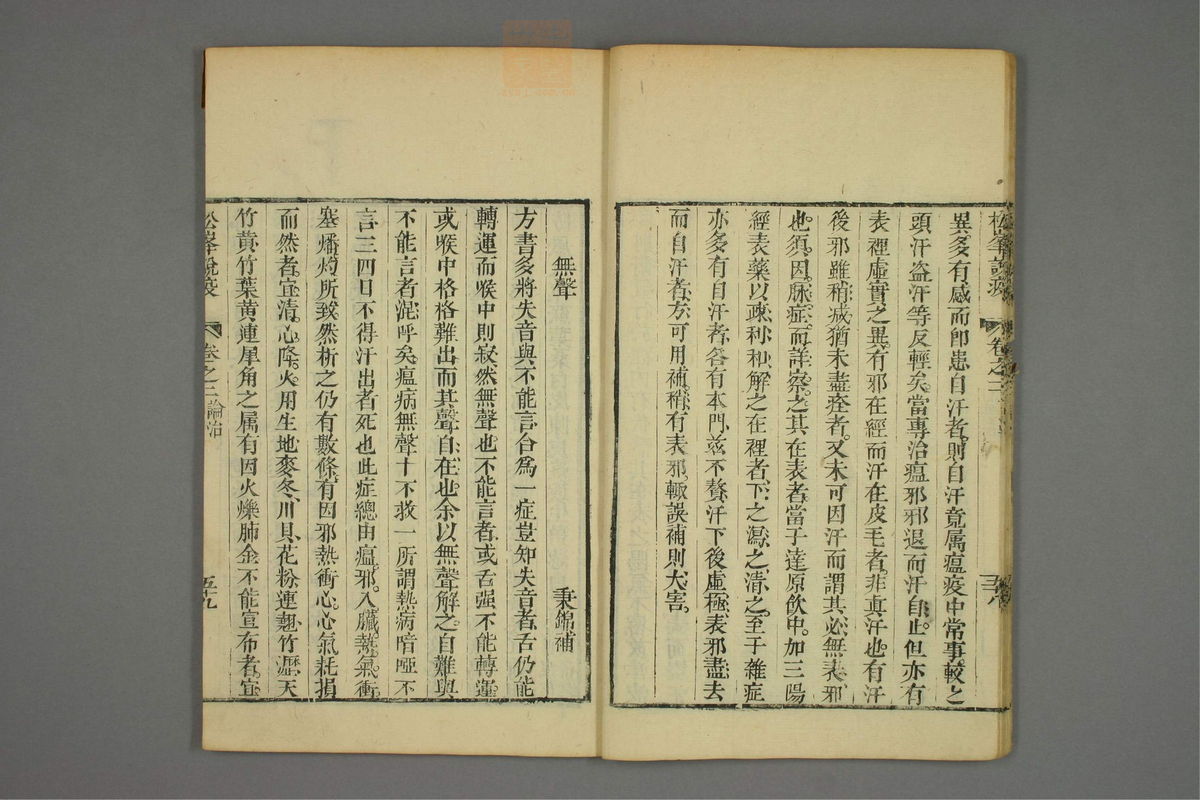 松峯說疫 卷之三 五八
異多有感而即患自汗者則自汗竟屬瘟疫中常事較之
頭汗盜汗等反輕矣當專治瘟邪邪退而汗自止但亦有
表裡虛實之異有邪在經而汗在皮毛者非真汗也有汗
後邪雖稍减猶未盡痊者又未可因汗而謂其必無表邪
也須因脉症而詳察之其在表者當于達原飲中加三陽
經表藥以疎利和解之在裡者下之瀉之清之至于雜症
亦多有自汗者各有本門兹不贅汗下後虛極表邪盡去
而自汗者方可用補稍有表邪輙誤補則大害
無聲 秉錦補
方書多將失音與不能言合爲一症豈知失音者舌仍能
轉運而喉中則寂然無聲也不能言者或舌强不能轉運
或喉中格格難出而其聲自在也余以無聲解之自難與
不能言者混呼矣瘟病無聲十不救一所謂熱病喑啞不
言三四日不得汗出者死也此症總由瘟邪入臟熱氣衝
塞燔灼所致然析之仍有數條有因邪熱衝心心氣耗損
而然者宜清心降火用生地麥冬川貝花粉連翹竹瀝天
竹黄竹葉黄連犀角之属有因火爍肺金不能宣布者宜
松峯說疫 卷之三論治 五十九